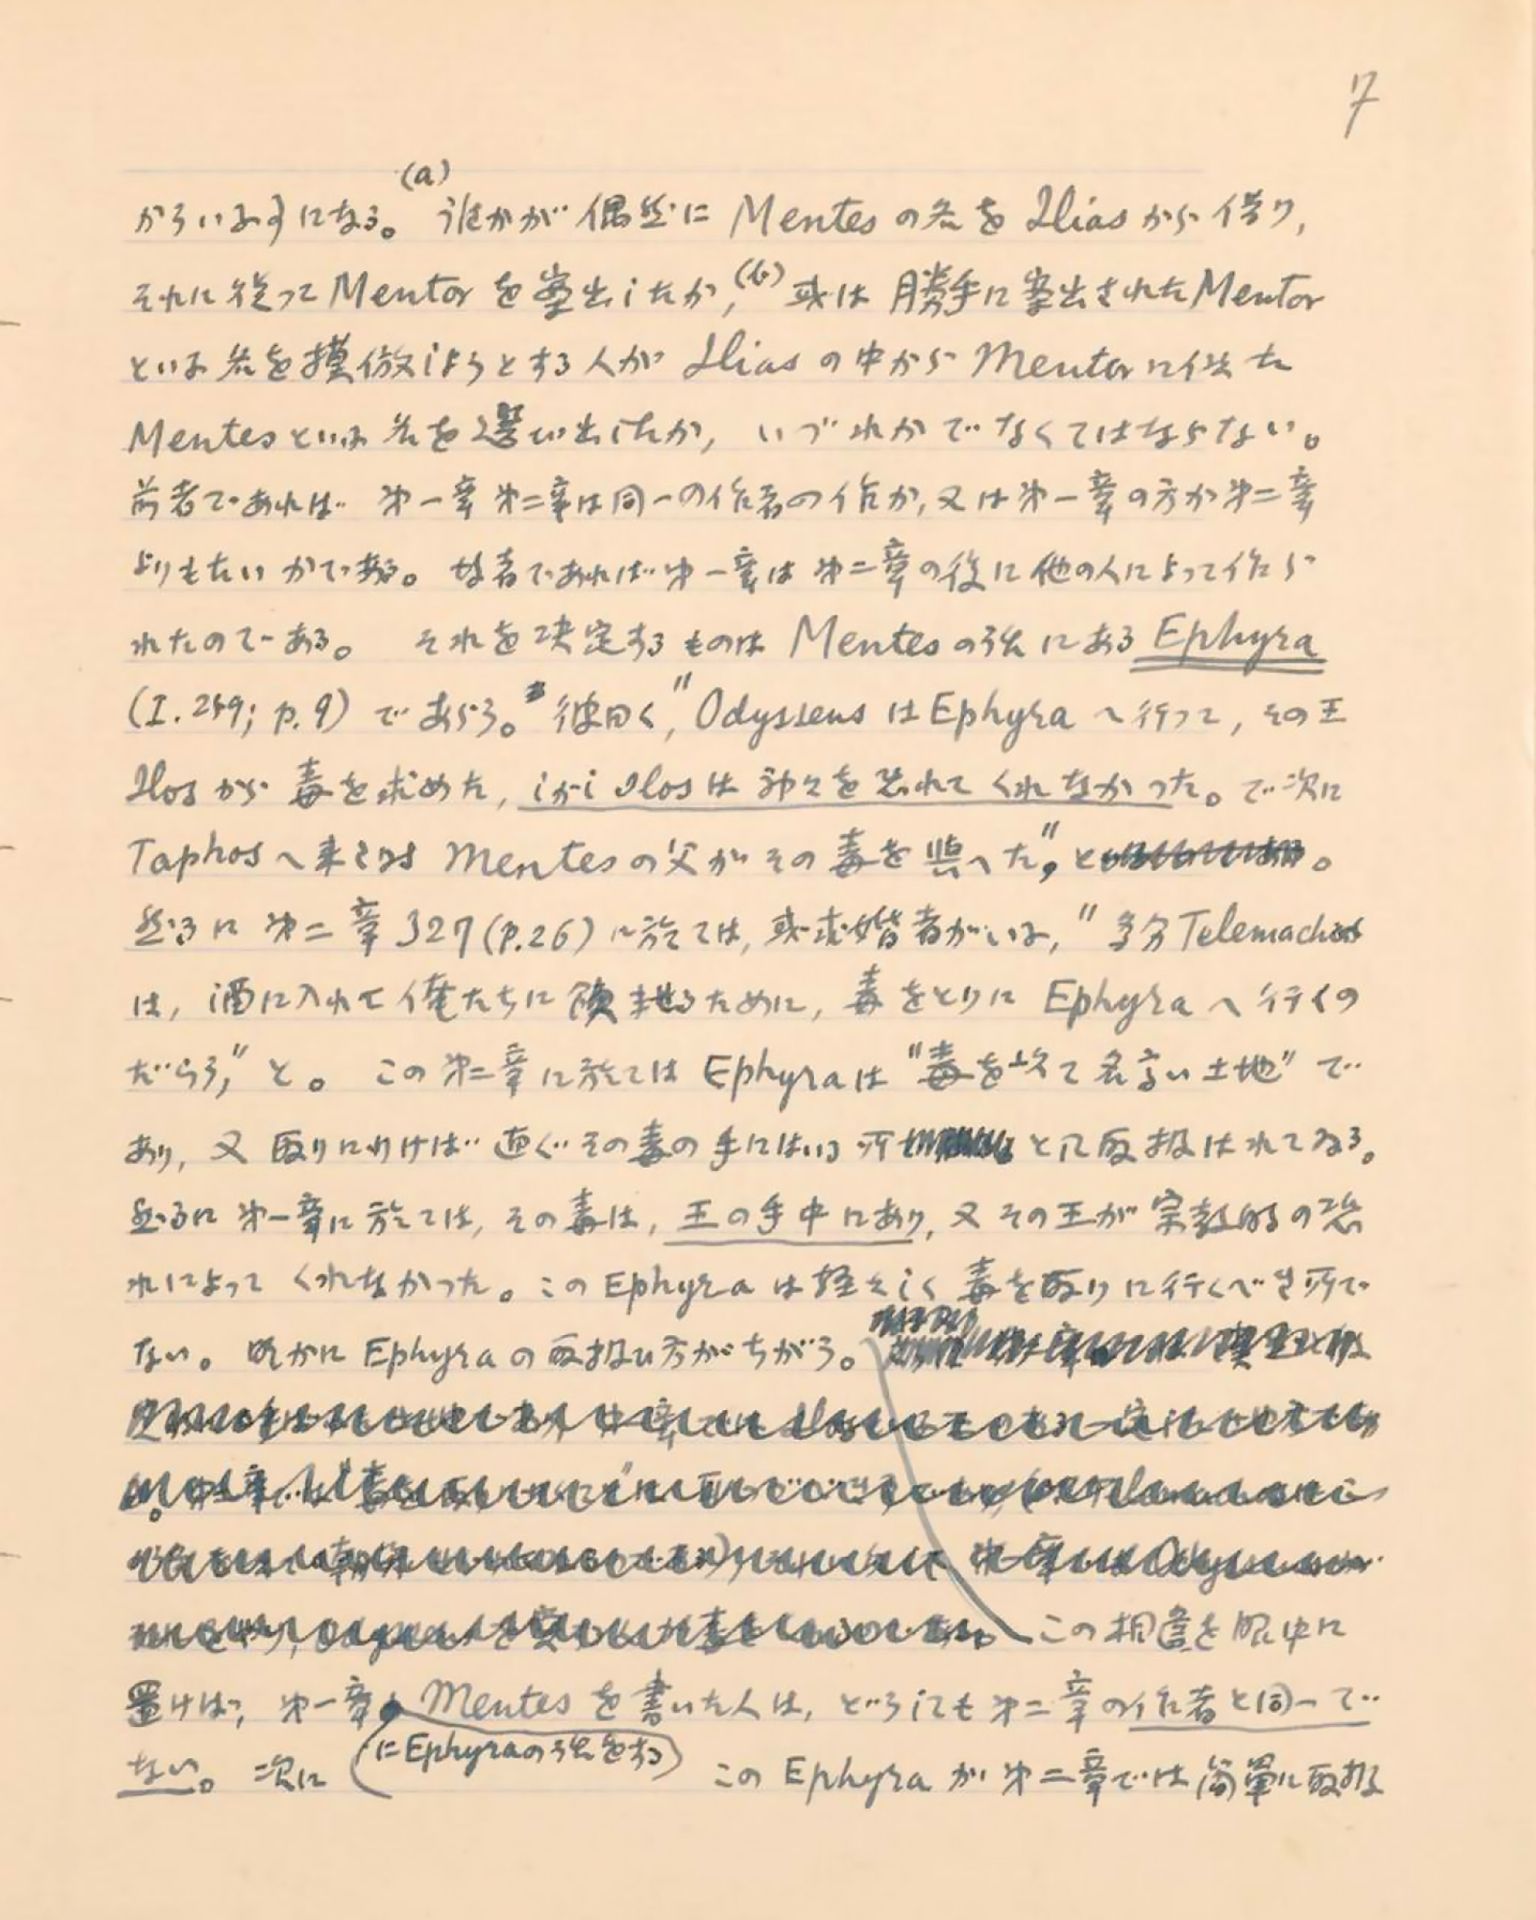 7
からいふ事になる。(a)誰かが偶然に Mentes の名を Ilias から借り,
それに従って Mentor を案出したか,(b)或は勝手に案出された Mentor
といふ名を模倣しようとする人が Ilias の中から Mentor に似た
Mentes といふ名を選び出したか, いづれかでなくてはならない。
前者であれば 㐧一章㐧二章は同一の作者の作か, 又は㐧一章の方が㐧二章
よりもたいかである。後者であれば㐧一章は㐧二章の後に他の人によって作ら
れたのである。 それを決定するものは Mentes の話にある Ephyra
(I.259; p.9) であらう。彼曰く,"Odysseus は Ephyra へ行って, その王
Ilos から毒を求めた, しかし Ilos は神々を恐れてくれなかった。で次に
Taphos へ来ると Mentes の父がその毒を與へた", と。
然るに㐧二章 327 (p.26) に於ては, 或求婚者がいふ, "多分 Telemachos
は, 酒に入れて俺たちに飲ませるために, 毒をとりに Ephyra へ行くの
だらう," と。 この㐧二章に於ては Ephyra は "毒を以て名高い土地" で
あり, 又取りに行けば直ぐその毒の手にはいる所と取扱はれてゐる。
然るに㐧一章に於ては, その毒は, 王の手中にあり, 又その王が宗教的の恐
れによってくれなかった。この Ephyra は軽々しく毒を取りに行くべき所で
ない。明かに Ephyra の取扱ひ方がちがう。
この相違を眼中に
置けば, 㐧一章 Mentes を書いた人は, どうしても㐧二章の作者と同一で
(に Ephyra の話をする)
ない。次に この Ephyra が㐧二章では簡單に取扱